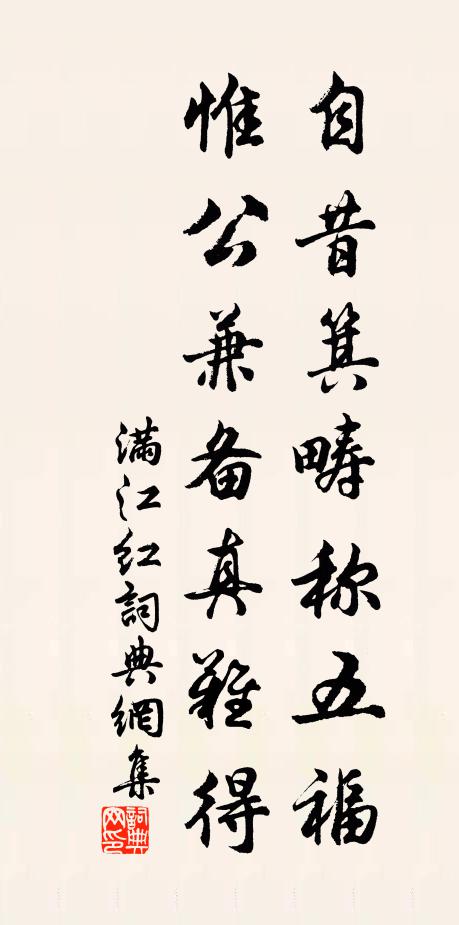 自昔箕畴称五福
惟公兼备真难得
满江红詞典網集
詞典
网印